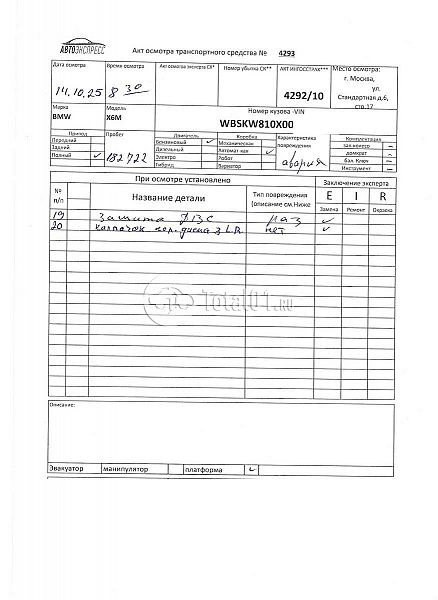 АВТОЭКСПРЕСС
Акт осмотра транспортного средства № 4293
Дата осмотра
Время осмотра
Акт осмотра эксперта СК*
Номер убытка СК**
АКТ ИНГОССТРАХ***
Место осмотра:
14.10.25
8 30
4292/10
г. Москва,
ул.
Стандартная д.6,
стр.17
Марка
Модель
Номер кузова -VIN
BMW
X6M
WBSKW810X00
Привод
Пробег
Двигатель
Коробка
Характеристика
повреждения
Комплектация
Передний
Задний
Полный ✓
182 722
Бензиновый ✓
Дизельный
Электро
Гибрид
Механическая
Автомат кая ✓
Робот
Вариатор
авария
зап.колесо –
домкрат –
бал. Ключ –
Инструмент –
При осмотре установлено
Заключение эксперта
№
п/п
Название детали
Тип повреждения
(описание см.Ниже
E I R
Замена Ремонт Окраска
19 Защита ДВС раз ✓
20 колпачок диска 3 L.R. нет ✓
Total01.ru
Описание:
Эвакуатор манипулятор платформа ✓